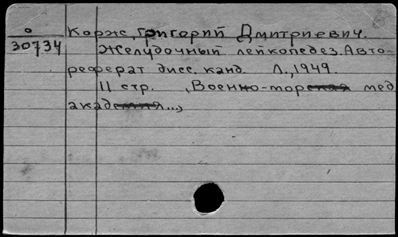 о
30734
Корж, Григорий Дмитриевич.
Желудочный лейкопедез. Авто-
реферат дисс. канд. Л., 1949.
11 стр. (Военно-морская мед.
академия...)